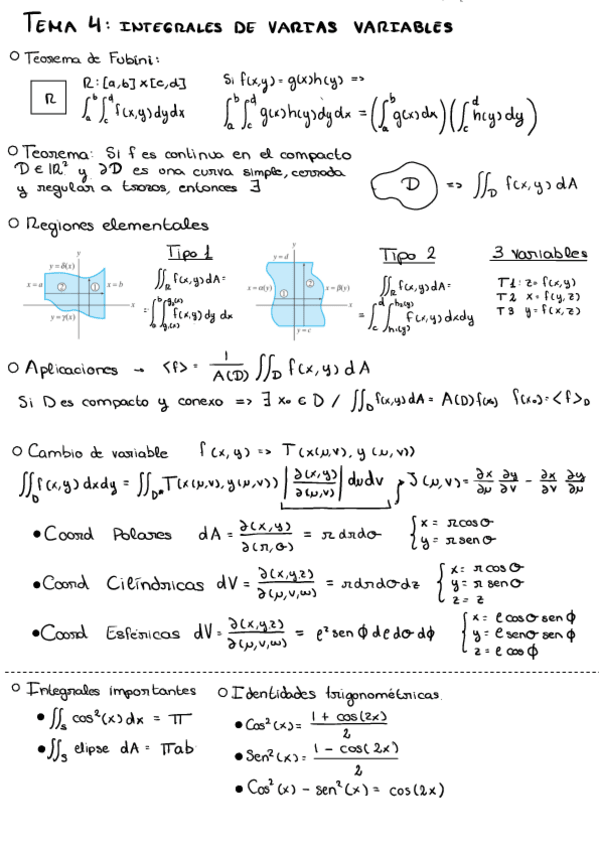 TEMA 4: INTEGRALES DE VARIAS VARIABLES
○ Teorema de Fubini:
R
R: [a,b] x [c,d]
∫_a^b ∫_c^d f(x,y) dy dx
Si f(x,y) = g(x)h(y) =>
∫_a^b ∫_c^d g(x)h(y) dy dx = (∫_a^b g(x) dx) (∫_c^d h(y) dy)
○ Teorema: Si f es continua en el compacto
D ∈ ℝ² y ∂D es una curva simple, cerrada
y regular a trozos, entonces ∃
D => ∬_D f(x,y) dA
○ Regiones elementales
y
y = δ(x)
x = a
② ①
x = b
x
y = γ(x)
Tipo 1
∬_R f(x,y) dA =
= ∫_a^b ∫_{g₁(x)}^{g₂(x)} f(x,y) dy dx
y
y = d
x = α(y)
② ①
x = β(y)
x
y = c
Tipo 2
∬_R f(x,y) dA =
= ∫_c^d ∫_{h₁(y)}^{h₂(y)} f(x,y) dx dy
3 variables
T1: z = f(x,y)
T2 x = f(y,z)
T3 y = f(x,z)
○ Aplicaciones → <f> = 1/A(D) ∬_D f(x,y) dA
Si D es compacto y conexo => ∃ x₀ ∈ D / ∬_D f(x,y) dA = A(D) f(x₀) f(x₀) = <f>_D
○ Cambio de variable f(x,y) => T(x(μ,v), y(μ,v))
∬_D f(x,y) dx dy = ∬_D* T(x(μ,v), y(μ,v)) |∂(x,y)/∂(μ,v)| dμ dv , J(μ,v) = ∂x/∂μ ∂y/∂v - ∂x/∂v ∂y/∂μ
• Coord Polares dA = ∂(x,y)/∂(r,θ) = r dr dθ { x = r cos θ
y = r sen θ
• Coord Cilíndricas dV = ∂(x,y,z)/∂(μ,v,w) = r dr dθ dz { x = r cos θ
y = r sen θ
z = z
• Coord Esféricas dV = ∂(x,y,z)/∂(μ,v,w) = ρ² sen ϕ dρ dθ dϕ { x = ρ cos θ sen ϕ
y = ρ sen θ sen ϕ
z = ρ cos ϕ
○ Integrales importantes
• ∬_S cos²(x) dx = π
• ∬_S elipse dA = πab
○ Identidades trigonométricas
• Cos²(x) = 1 + cos(2x) / 2
• Sen²(x) = 1 - cos(2x) / 2
• Cos²(x) - sen²(x) = cos(2x)